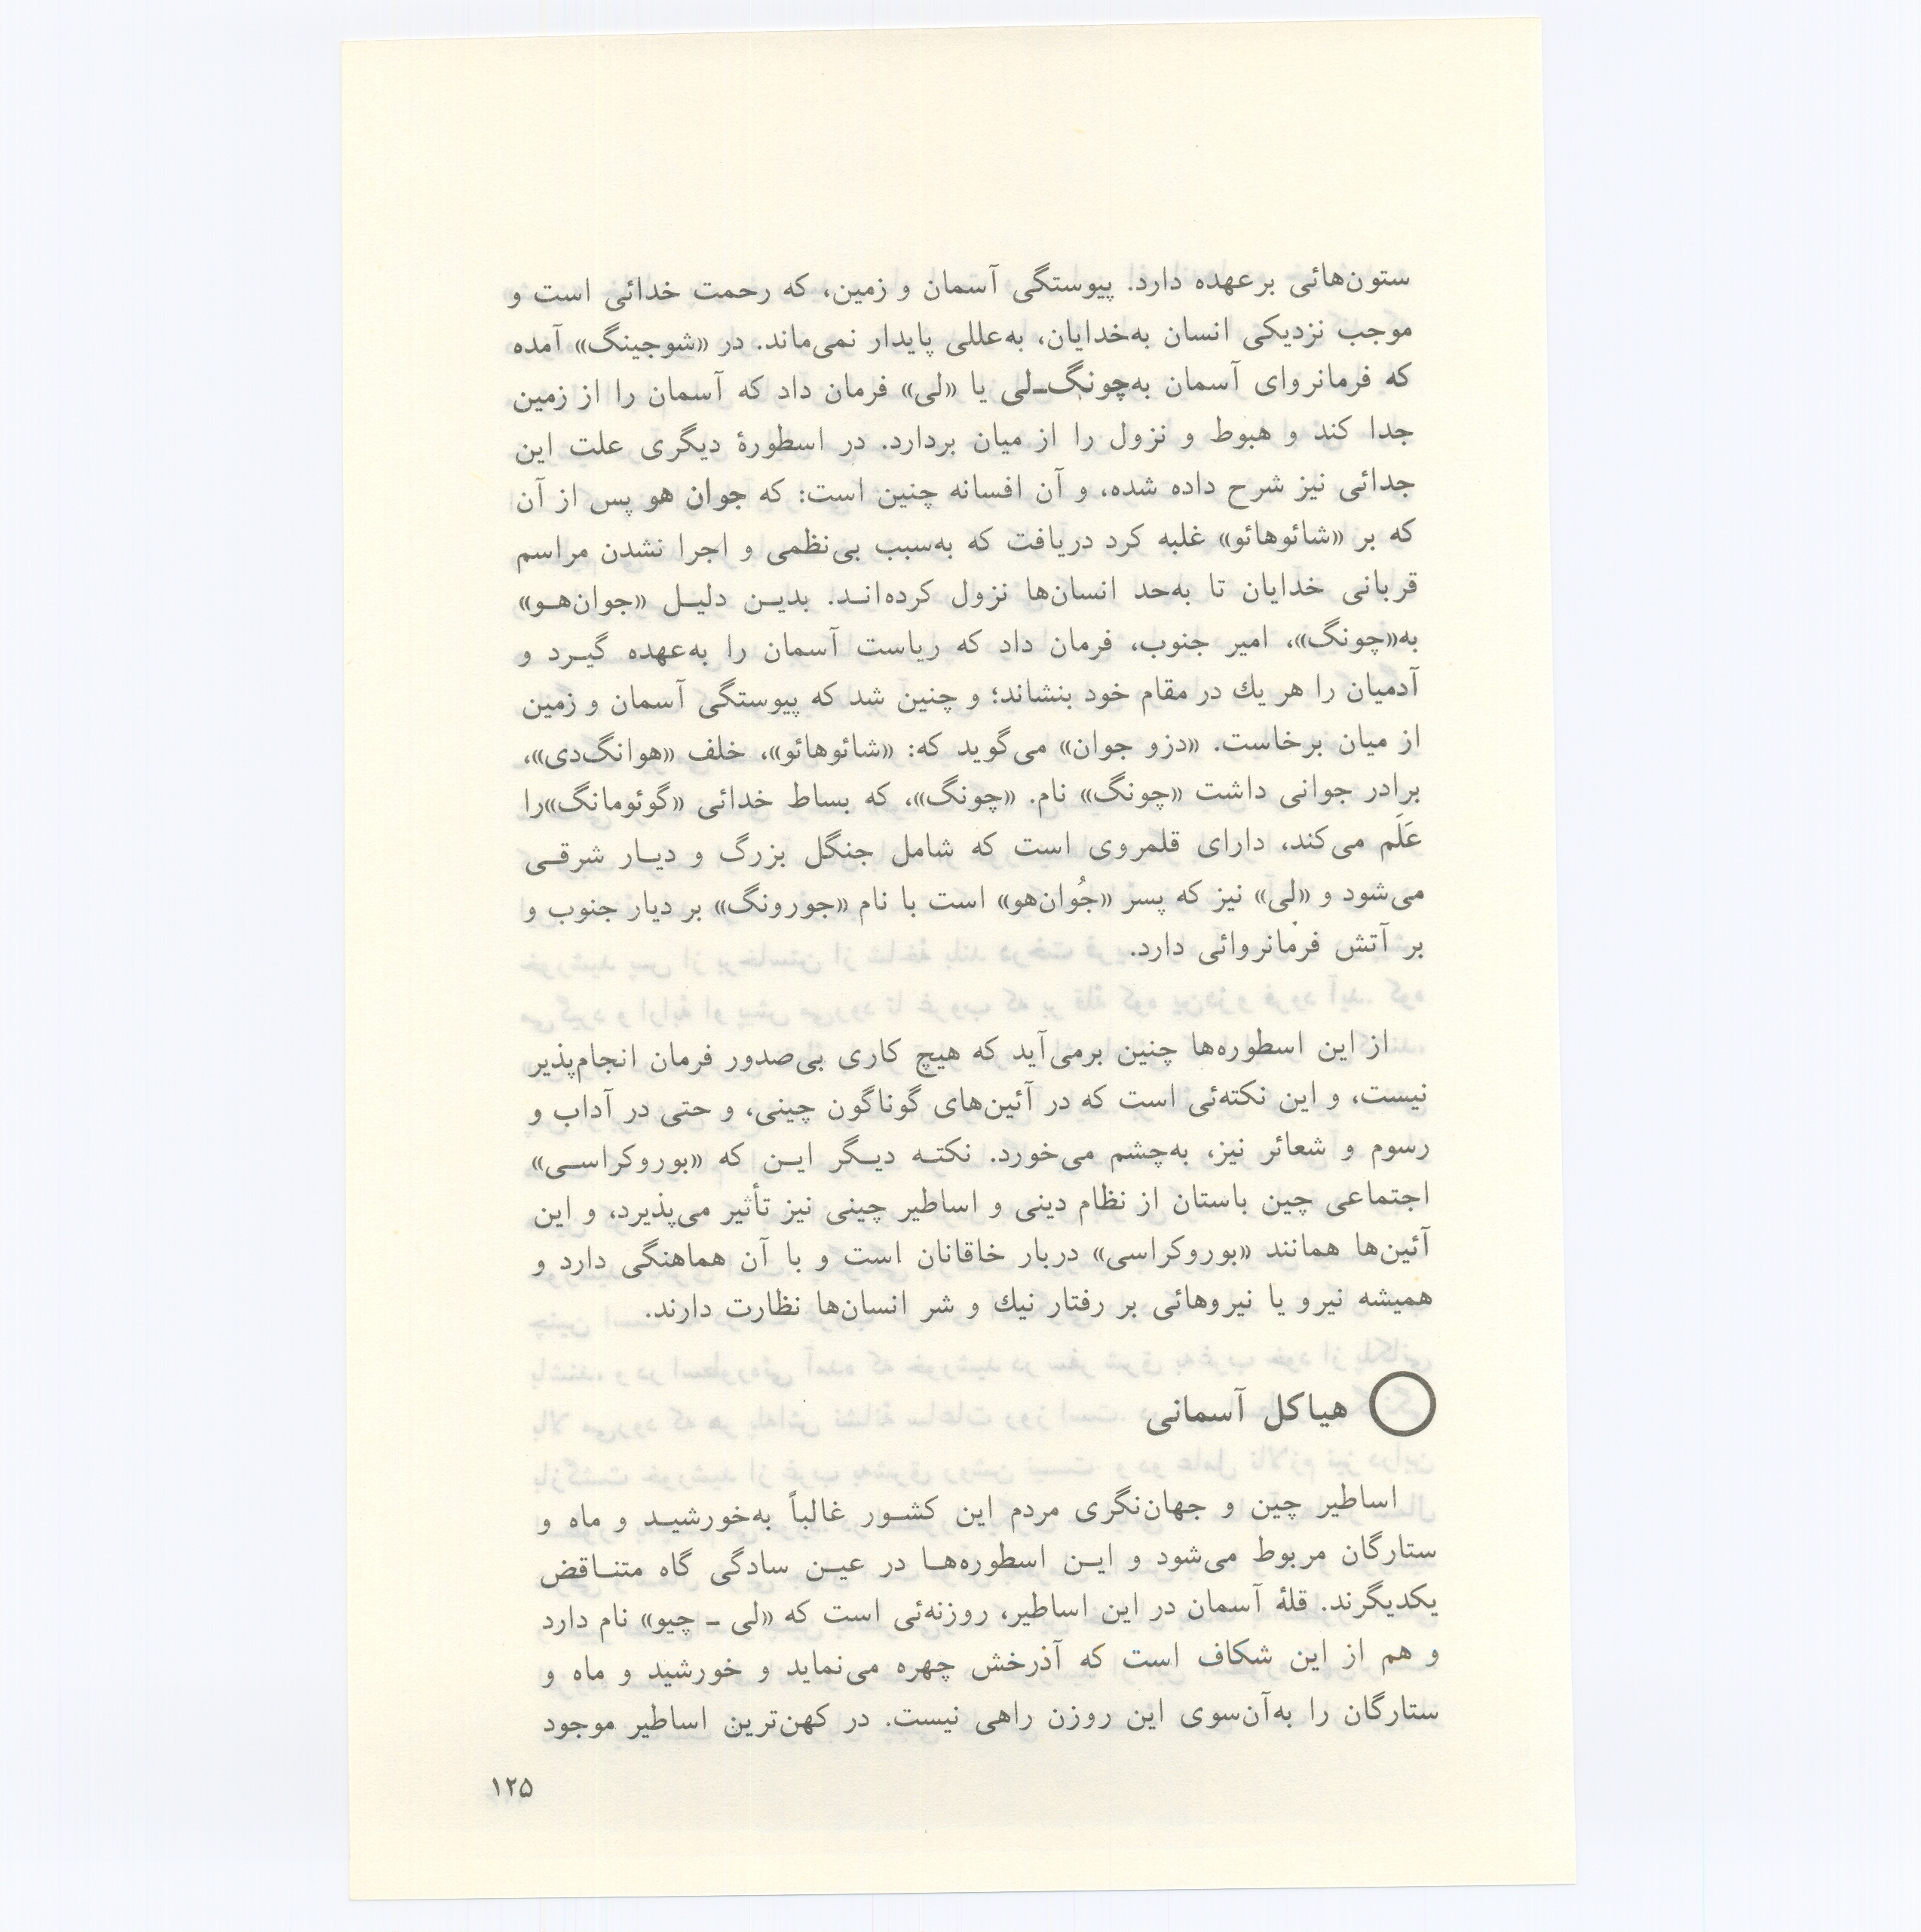 ستون‌هائی برعهده دارد. پیوستگی آسمان و زمین، که رحمت خدائی است و
موجب نزدیکی انسان به‌خدایان، به‌عللی پایدار نمی‌ماند. در «شوجینگ» آمده
که فرمانروای آسمان به‌چونگ‌ـ‌لی یا «لی» فرمان داد که آسمان را از زمین
جدا کند و هبوط و نزول را از میان بردارد. در اسطورهٔ دیگری علت این
جدائی نیز شرح داده شده، و آن افسانه چنین است: که جوان هو پس از آن
که بر «شائوهائو» غلبه کرد دریافت که به‌سبب بی‌نظمی و اجرا نشدن مراسم
قربانی خدایان تا به‌حد انسان‌ها نزول کرده‌انـد. بدیـن دلیـل «جوان‌هـو»
به«چونگ»، امیر جنوب، فرمان داد که ریاست آسمان را به‌عهده گیـرد و
آدمیان را هر یك در مقام خود بنشاند؛ و چنین شد که پیوستگی آسمان و زمین
از میان برخاست. «دزو جوان» می‌گوید که: «شائوهائو»، خلف «هوانگ‌دی»،
برادر جوانی داشت «چونگ» نام. «چونگ»، که بساط خدائی «گوئومانگ»را
عَلَم می‌کند، دارای قلمروی است که شامل جنگل بزرگ و دیـار شرقـی
می‌شود و «لی» نیز که پسر «جُوان‌هو» است با نام «جورونگ» بر دیار جنوب و
بر آتش فرمانروائی دارد.
از این اسطوره‌ها چنین برمی‌آید که هیچ کاری بی‌صدور فرمان انجام‌پذیر
نیست، و این نکته‌ئی است که در آئین‌های گوناگون چینی، و حتی در آداب و
رسوم و شعائر نیز، به‌چشم می‌خورد. نکتـه دیـگر ایـن که «بوروکراسـی»
اجتماعی چین باستان از نظام دینی و اساطیر چینی نیز تأثیر می‌پذیرد، و این
آئین‌ها همانند «بوروکراسی» دربار خاقانان است و با آن هماهنگی دارد و
همیشه نیرو یا نیروهائی بر رفتار نیك و شر انسان‌ها نظارت دارند.
هیاکل آسمانی
اساطیر چین و جهان‌نگری مردم این کشـور غالباً به‌خورشیـد و ماه و
ستارگان مربوط می‌شود و ایـن اسطوره‌هـا در عیـن سادگی گاه متنـاقض
یکدیگرند. قلهٔ آسمان در این اساطیر، روزنه‌ئی است که «لی ـ چیو» نام دارد
و هم از این شکاف است که آذرخش چهره می‌نماید و خورشید و ماه و
ستارگان را به‌آن‌سوی این روزن راهی نیست. در کهن‌ترین اساطیر موجود
۱۲۵